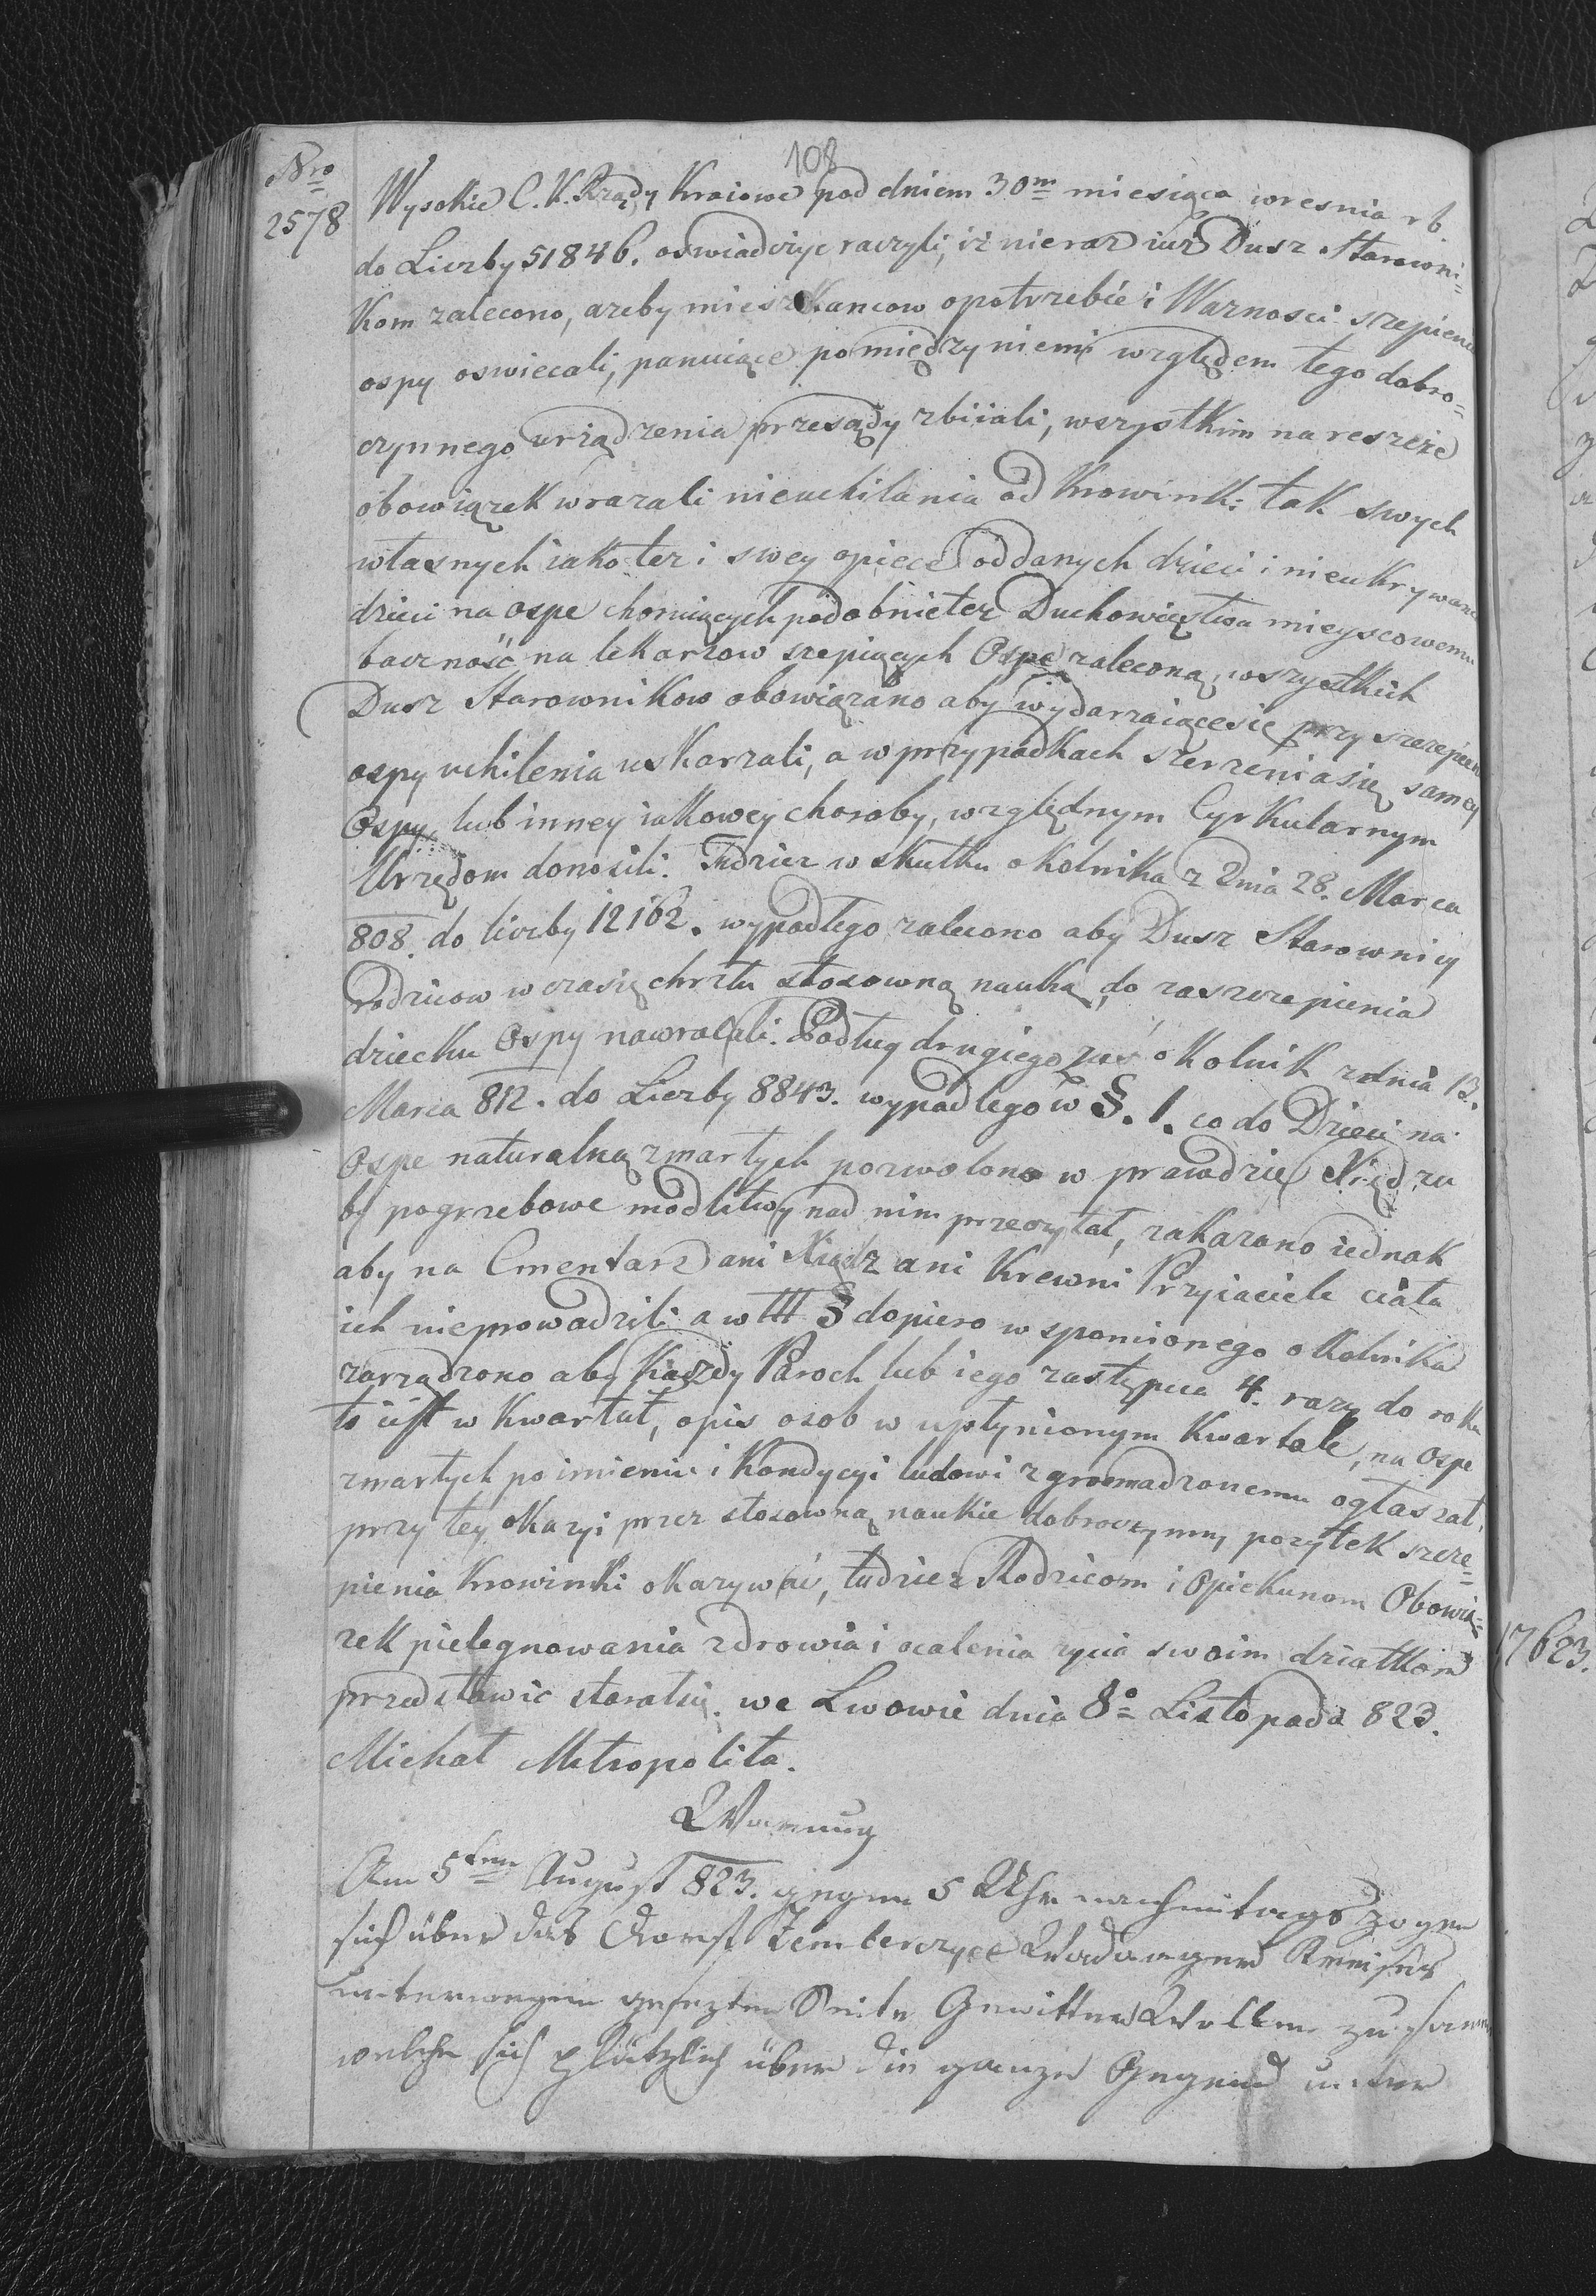 108
Nro
2578
Wysokie C. K. Rządy Kraiowe pod dniem 30m miesiąca wresnia rb.
do Liczby 51846. oswiadczyc raczyli, iż nieraz iuż Dusz Starowni=
kom zalecono, azeby mieszkancow opotrzebie i Warnosci szepienia
ospy oswiecali, panuiące pomiędzy niemi względem tego dobro=
czynnego urządzenia przesądy zbiiali, wszystkim nareszcie
obowiązek wrazali nieuchilania od Krowinki tak swych
własnych iakotez i swey opiece oddanych dzieci i nieukrywania
dzieci na ospe choruiących podobnietez Duchowięstwu mieyscowemu
baczność na lekarzow szepiących Ospę zaleconą, wszystkich
Dusz Starownikow obowiązano aby wydarzaiącesie przy szczepieniu
ospy uchilenia uskarzali, a w przypadkach szerzeniasię samey
Ospy, lub inney iakowey choroby, względnym Cyrkularnym
Urzędom donosili. Tudziez w skutku okolnika z Dnia 28. Marca
808. do liczby 12162. wypadłego zalecono aby Dusz Starownicy
rodzicow w czasię chrztu stosowną nauką do zaszczepienia
dziecku Ospy nawracali. Podług drugiego zas okolnik zdnia 13.
Marca 812. do Liczby 8843. wypadlego w §. 1. co do Dzieci na
Ospe naturalną zmarłych pozwolono w prawdzie Xiędzu
by pogrzebowe modlitwy nad nim przeczytał, zakazano iednak
aby na Cmentarz ani Xiądz ani Krewni Przyiaciele ciała
ich nieprowadzili a w III § dopiero wspomionego okolnika
zarządzono aby Każdy Paroch lub iego zastępca 4. razy do roku
to iest w Kwartał, opis osob w upłynionym Kwartale, na Ospe
zmarłych po imieniu i Kondycyi ludowi zgromadzonemu ogłaszał,
przy tey okazyi przez stosowną naukie dobroczynny pozytek szcze=
pienia Krowinki okazywać, tudziez Rodzicom i Opiekunom Obowią=
zek pielegnowania zdrowia i ocalenia zycia swoim dziatkom
przedstawic starałsię. we Lwowie dnia 8o Listopada 823.
Michał Metropolita.
Warnung
Am 5ten August 823. gegen 5 Uhr nachmitags zogen
sich über das Dorf Zemberzyce Wadowicer Kreises
entgegen gesezten Seite Gewitter Wolken zusamm
welche sich plötzlich über die ganze Gegend unter
17623.